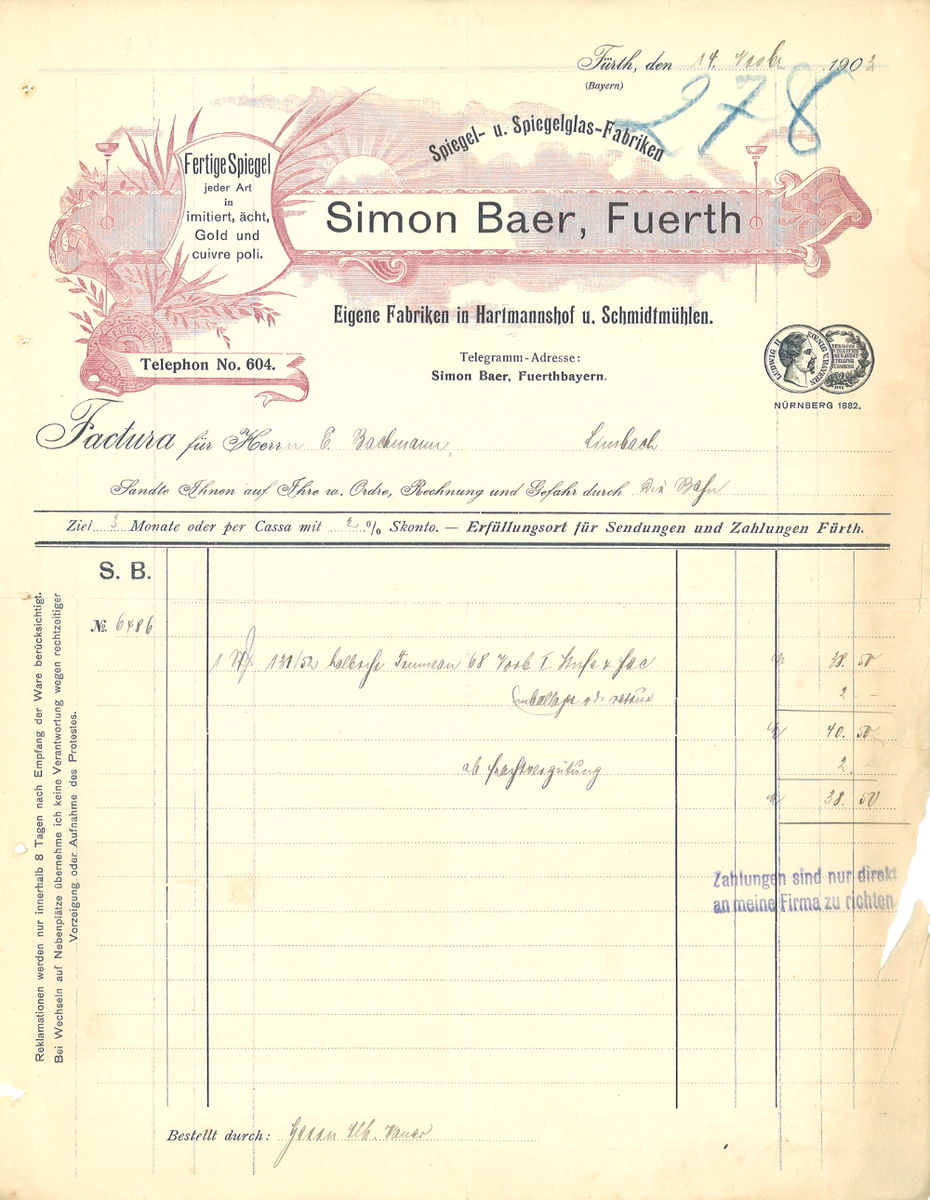 Fürth, den 14. Novbr. 1903
(Bayern)
278
Spiegel- u. Spiegelglas-Fabriken
Fertige Spiegel
jeder Art
in
imitiert, ächt,
Gold und
cuivre poli.
Simon Baer, Fuerth
Eigene Fabriken in Hartmannshof u. Schmidtmühlen.
Telephon No. 604.
Telegramm-Adresse:
Simon Baer, Fuerthbayern.
LUDWIG II KOENIG V. BAYERN
NÜRNBERG 1882.
Factura für Herrn C. Bachmann, Limbach
Sandte Ihnen auf Ihre w. Ordre, Rechnung und Gefahr durch Die Bahn
Ziel 3 Monate oder per Cassa mit 2 % Skonto. — Erfüllungsort für Sendungen und Zahlungen Fürth.
S. B.
№ 6486
1 131/52 68 I & Fac 38. 50
Emballage retour 2. -
40. 50
ab Frachtvergütung 2. -
38. 50
Zahlungen sind nur direkt
an meine Firma zu richten
Reklamationen werden nur innerhalb 8 Tagen nach Empfang der Ware berücksichtigt.
Bei Wechseln auf Nebenplätze übernehme ich keine Verantwortung wegen rechtzeitiger
Vorzeigung oder Aufnahme des Protestes.
Bestellt durch: Herrn